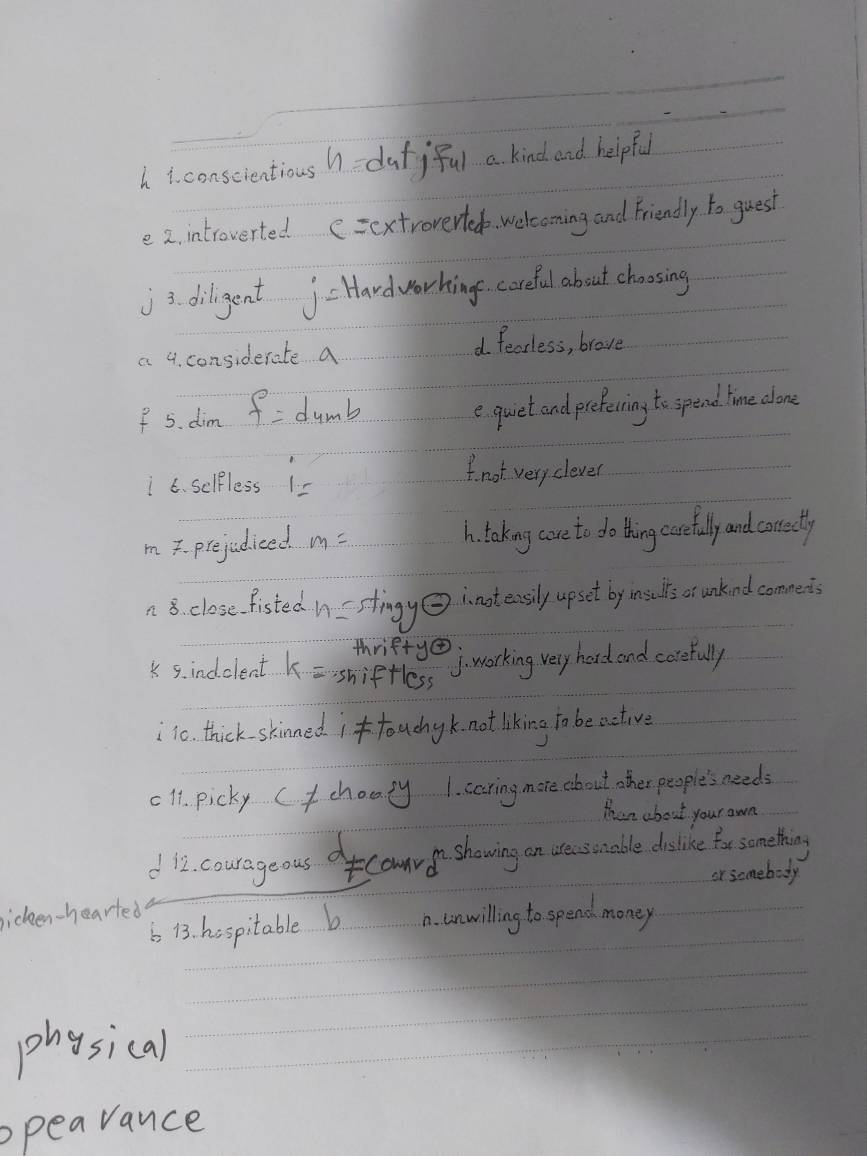 h 1. conscientious h = dutiful a. kind and helpful
e 2. introverted e = extroverted b. welcoming and friendly to guest
j 3. diligent j = Hardworking c. careful about choosing
a 4. considerate a d. fearless, brave
f 5. dim f = dumb e. quiet and prefering to spend time alone
i 6. selfless i = f. not very clever
m 7. prejudiced m = h. taking care to do thing carefully and correctly
n 8. close-fisted n = stingy ⊖ i. not easily upset by insults or unkind comments
thrifty ⊕
k 9. indolent k = shiftless j. working very hard and carefully
i 10. thick-skinned i ≠ touchy k. not liking to be active
c 11. picky c ≠ choosy l. caring more about other people's needs
than about your own
d 12. courageous d ≠ coward m. showing an unreasonable dislike for something
or somebody
hicken-hearted
b 13. hospitable b n. unwilling to spend money
physical
ppearance